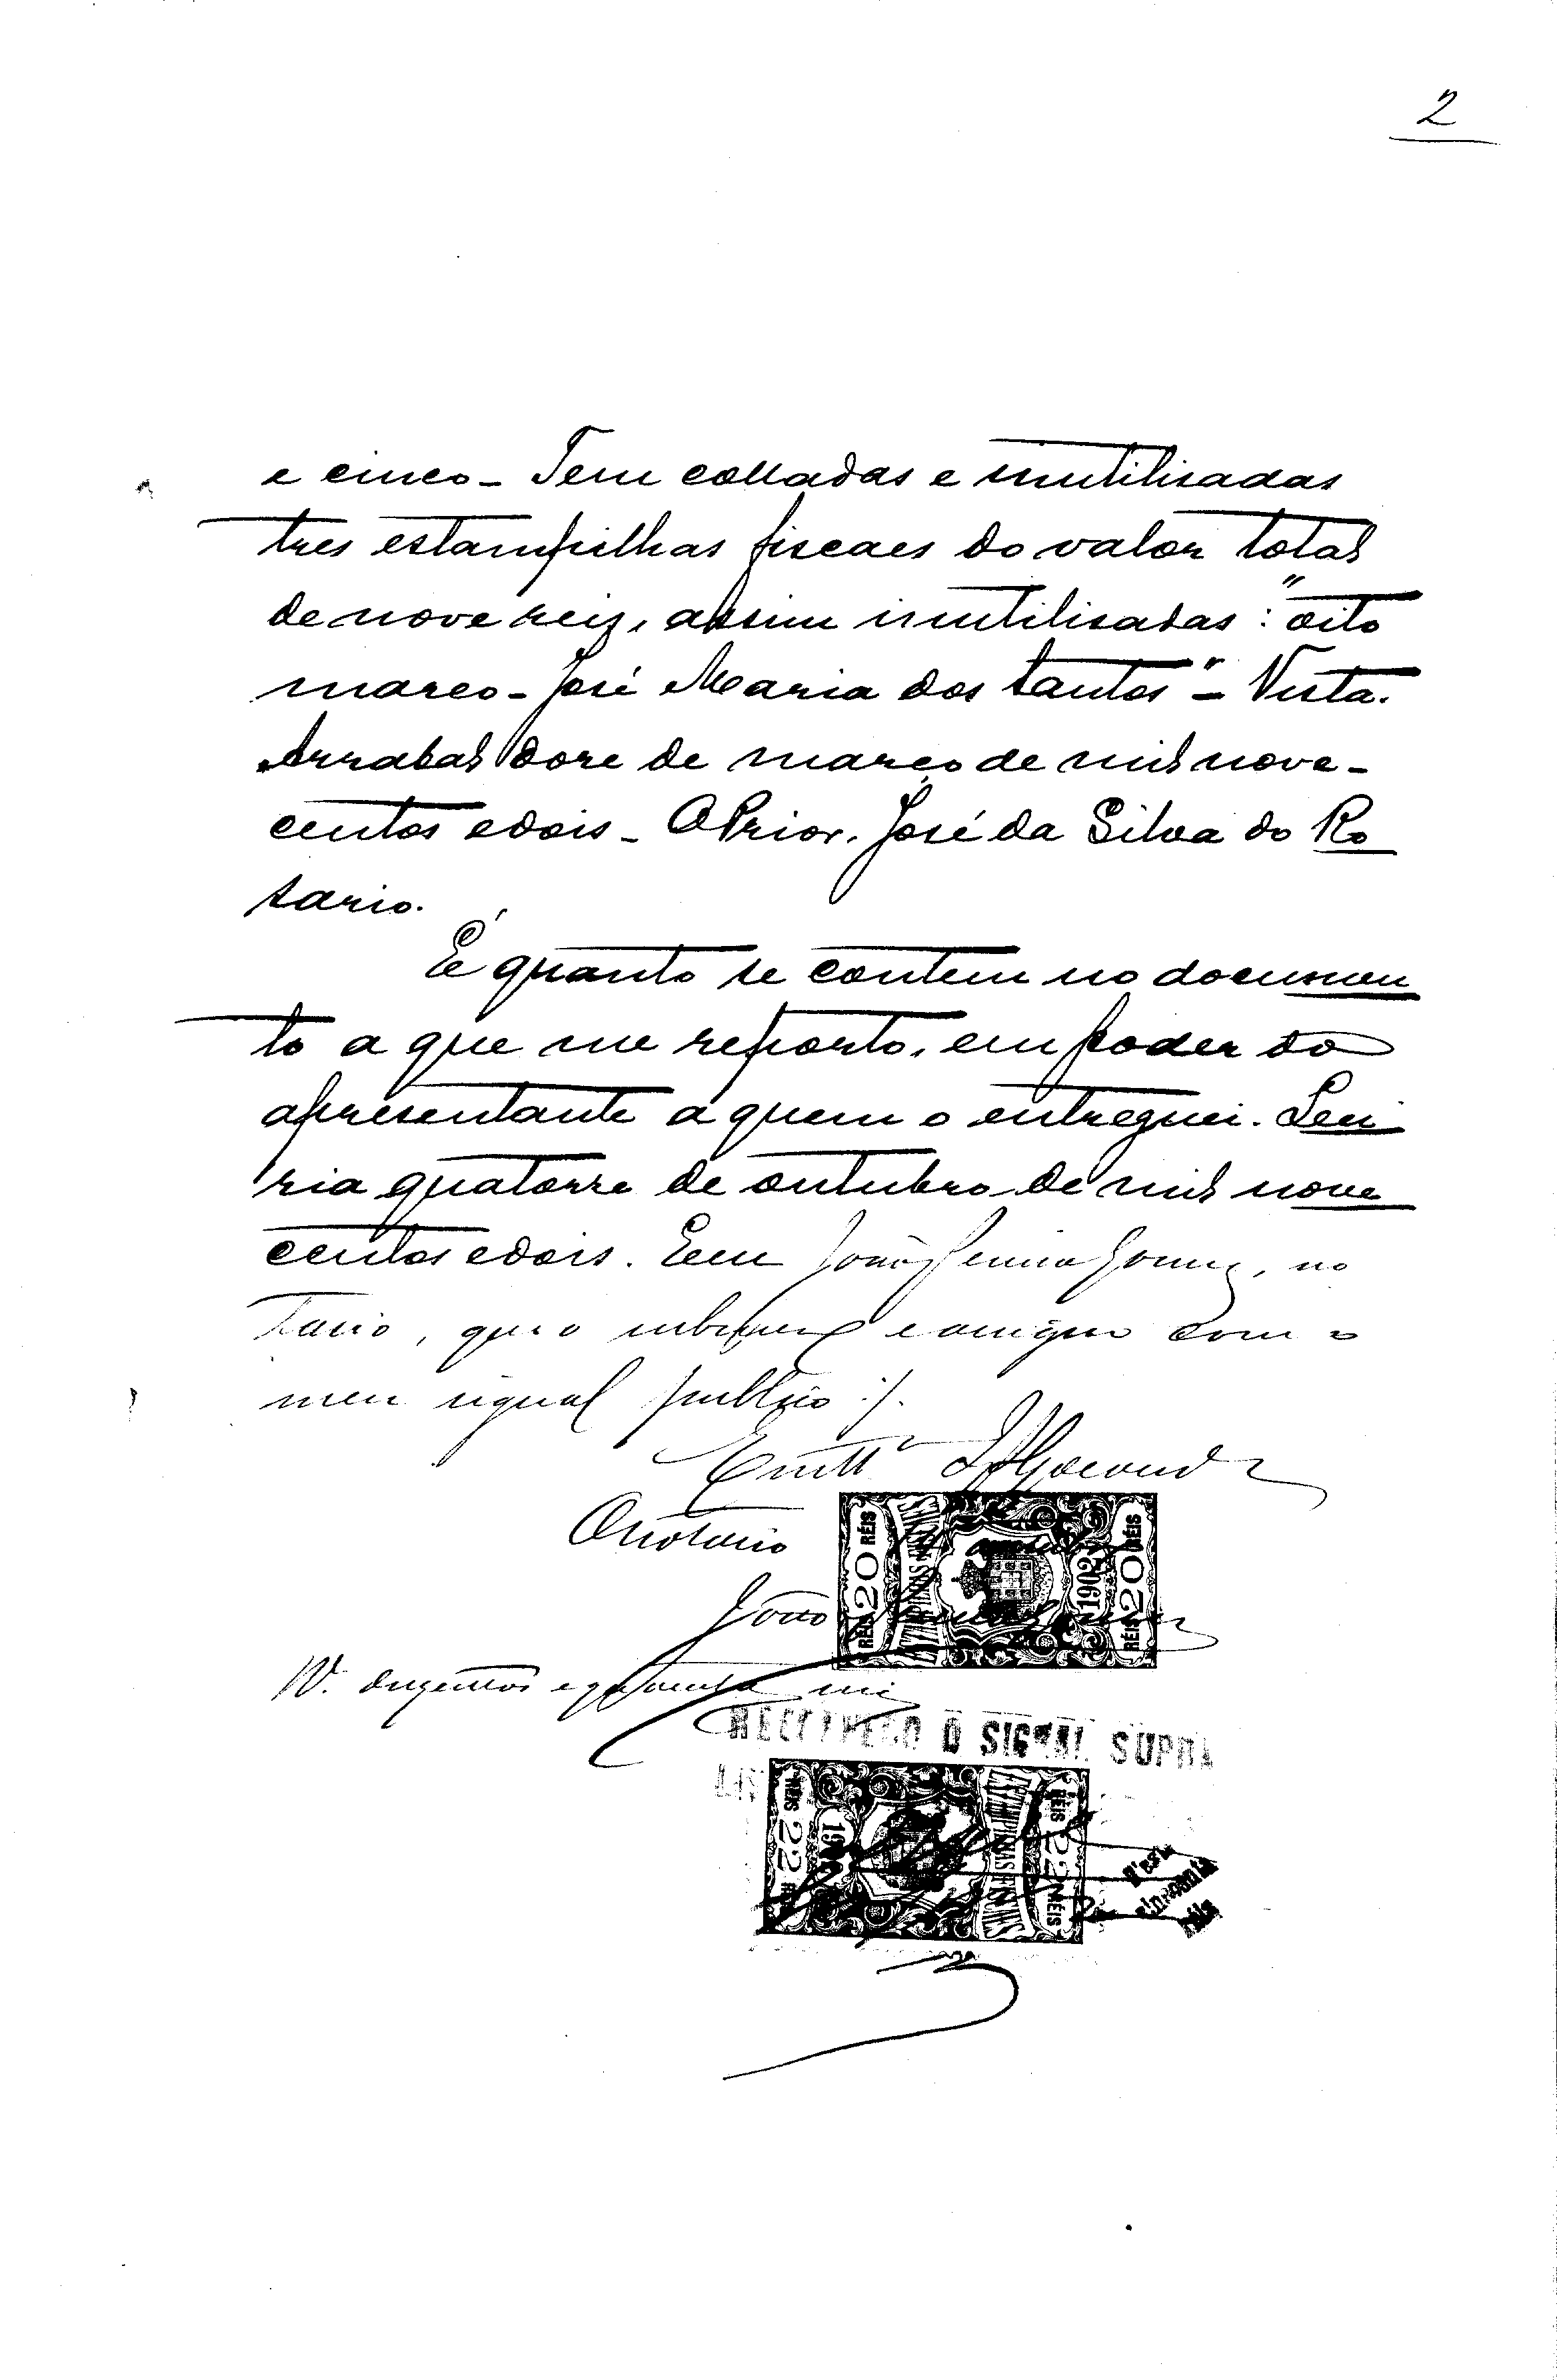 2
e cinco – Tem colladas e inutilisadas
tres estampilhas fiscaes do valor total
de nove reis, assim inutilisadas: "oito
março – José Maria dos Santos" – Visto.
Arrabal doze de março de mil nove-
centos e dois – O Prior. José da Silva do Ro
sario.
É quanto se contem no documen
to a que me reporto, em poder do
apresentante a quem o entreguei. Lei
ria quatorze de outubro de mil nove
centos e dois. Eu João Gomes, no
tario, que o subscrevi e assigno com o
meu signal publico
O notario
João
RECONHEÇO O SIGNAL SUPRA
RÉIS 20 RÉIS
1902
RÉIS 20 RÉIS
RÉIS 22
RÉIS 22 RÉIS
réis